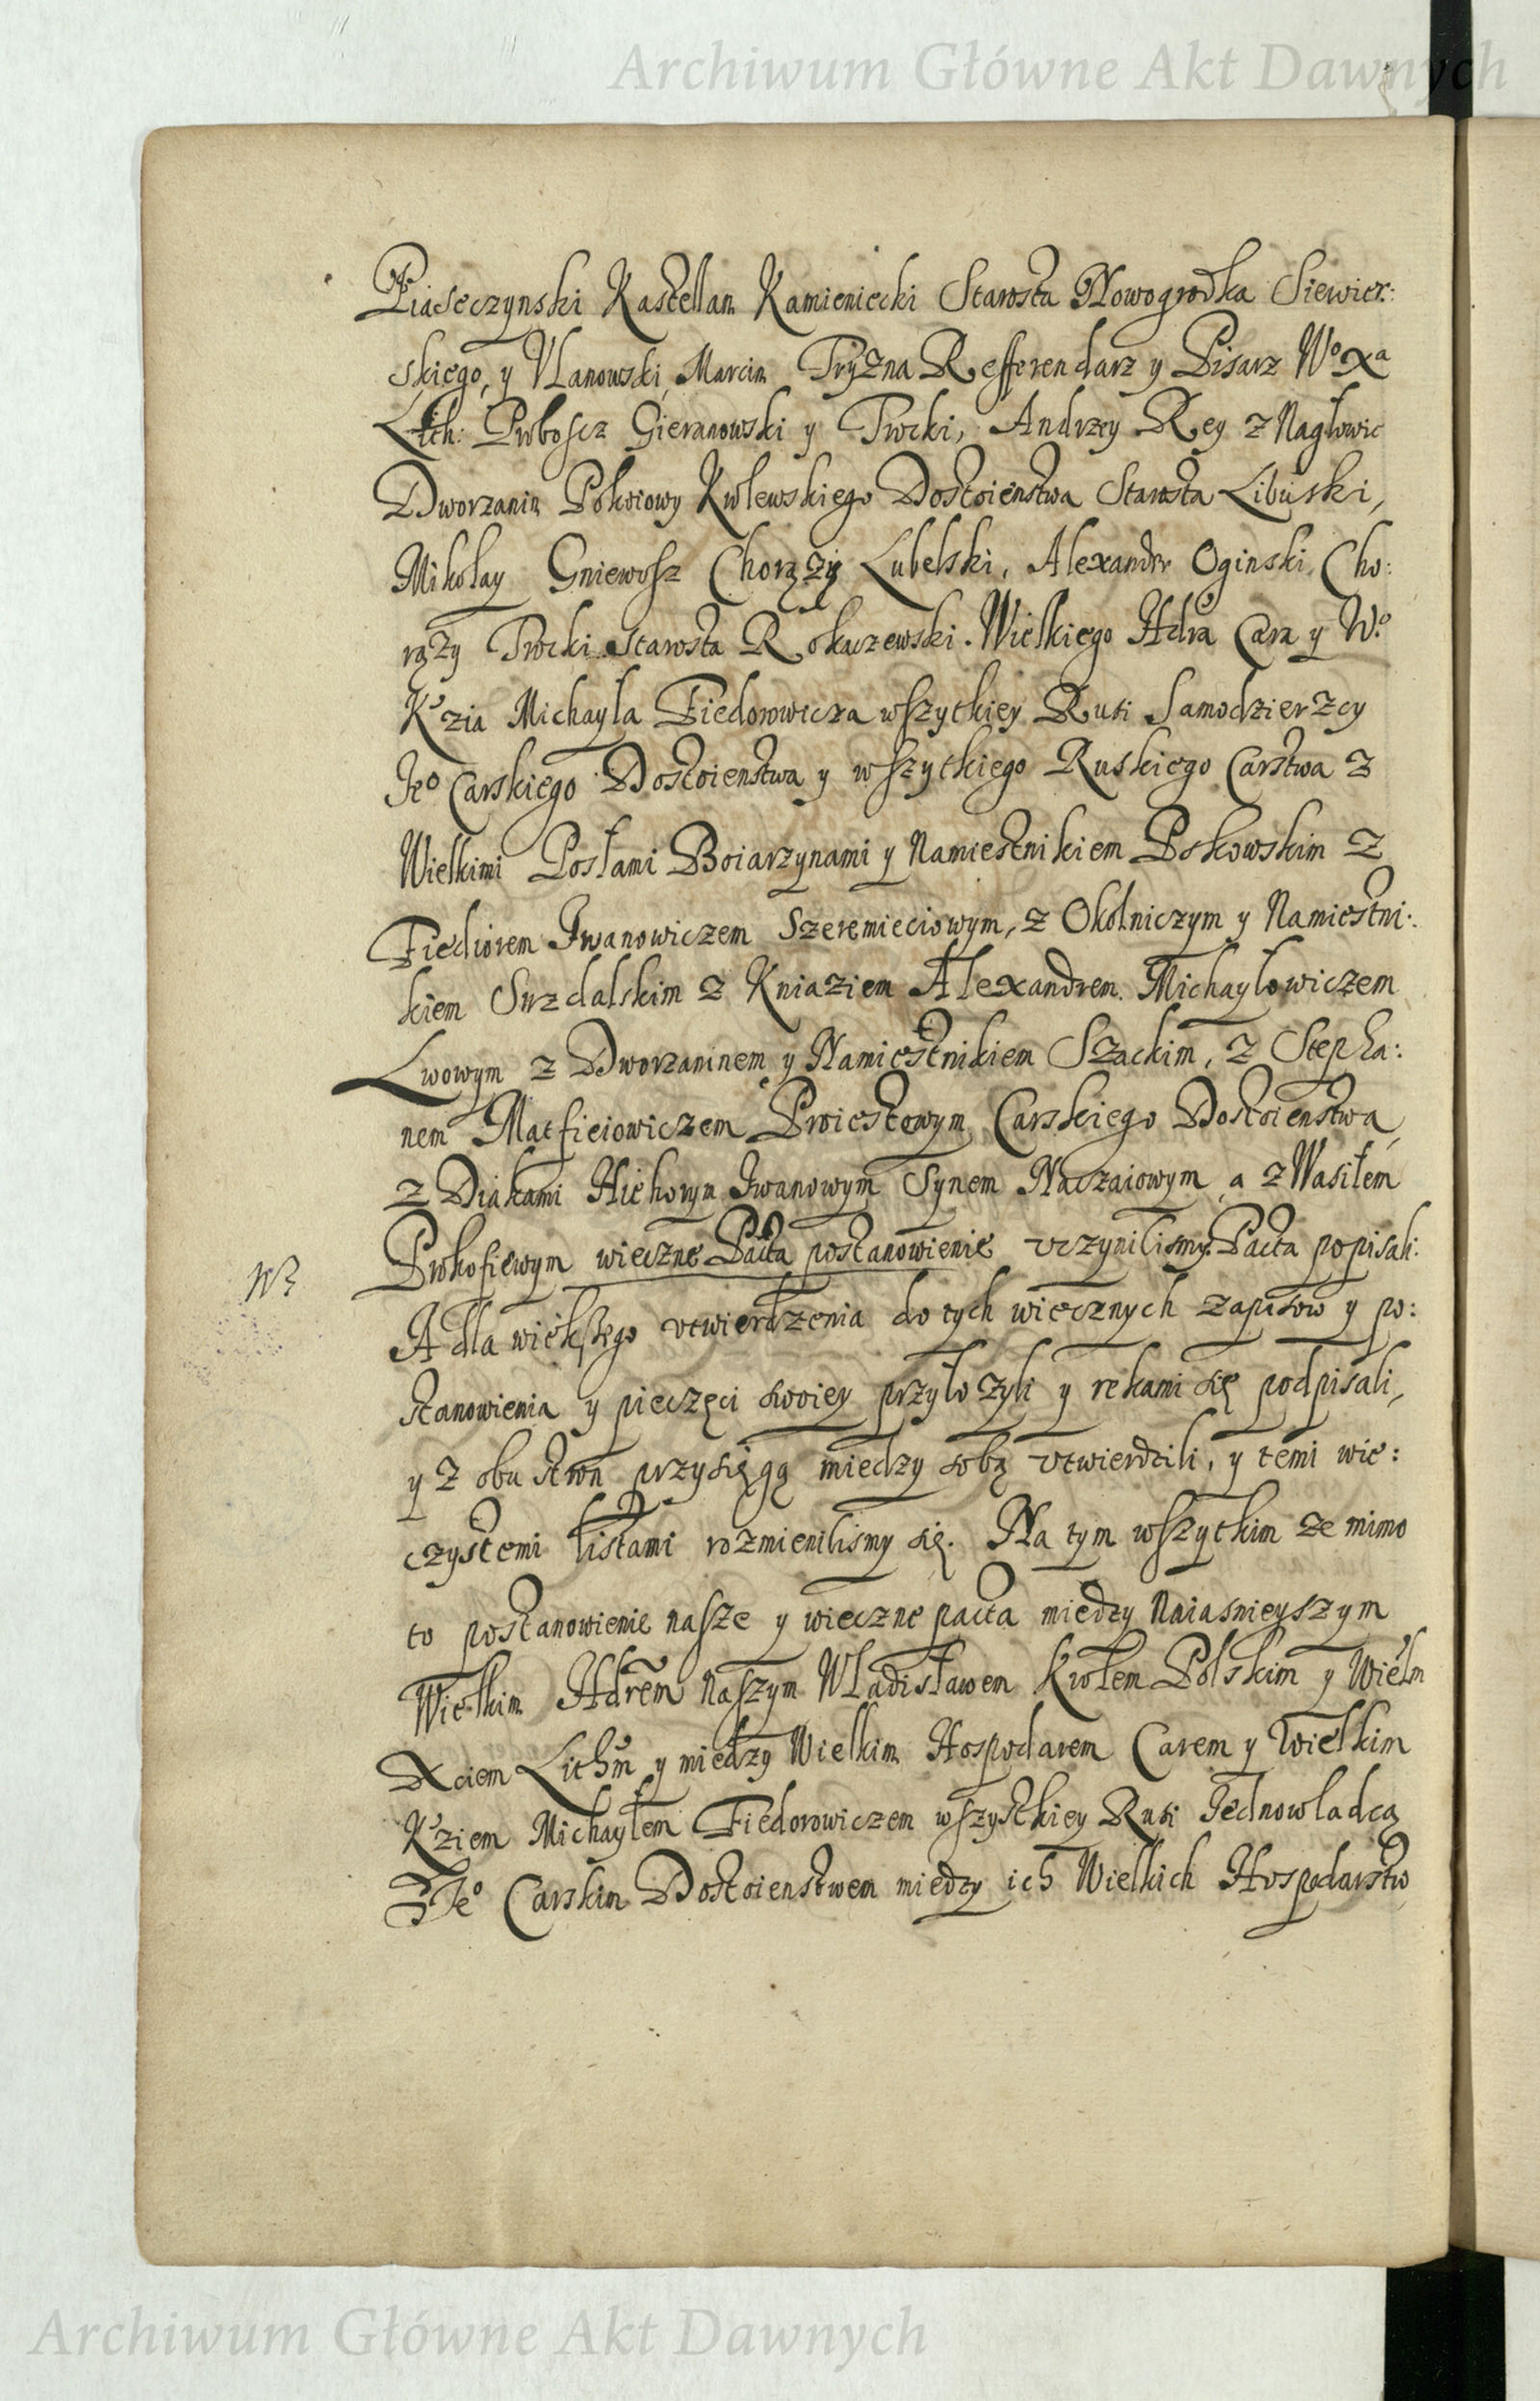 Archiwum Główne Akt Dawnych
Piaseczynski Kasztellan Kamieniecki Starosta Nowogrodka Siewier:
skiego, y Vlanowski, Marcin Tryzna Refferendarz y Pisarz Wo Xa
Lith: Proboscz Gieranowski y Trocki, Andrzey Rey z Nagłowic
Dworzanin Pokoiowy Krolewskiego Dostoienstwa Starosta Libuski,
Mikołay Gniewosz Chorąży Lubelski, Alexandr Oginski Cho:
rąży Trocki Starosta Rokaczewski. Wielkiego Hdra Cara y Wo
Kzia Michayla Fiedorowicza wszytkiey Rusi Samodzierzcy
Jeo Carskiego Dostoienstwa y wszytkiego Ruskiego Carstwa z
Wielkimi Posłami Boiarzynami y Namiestnikiem Pskowskim z
Fiediorem Iwanowiczem Szeremieciowym, z Okolniczym y Namiestni:
kiem Suzdalskim z Kniaziem Alexandrem Michayłowiczem
Lwowym z Dworzaninem y Namiestnikiem Szackim, z Stepha:
nem Matfieiowiczem Proiestowym Carskiego Dostoienstwa,
z Diakami Hrehorym Iwanowym Synem Naczaiowym, a z Wasiłem
Prokofiewym wieczne Pacta postanowienie vczynilismy Pacta popisali:
A dla większego vtwierdzenia do tych wiecznych zapisow y po:
stanowienia y pieczęci swoiey przyłożyli y rekami się podpisali,
y z obu stron przysięgą miedzy sobą vtwierdzili, y temi wie:
czystemi listami rozmienilismy się. Na tym wszytkim ze mimo
to postanowienie nasze y wieczne pacta miedzy Naiasnieyszym
Wielkim Hdrem Naszym Władisławem Krolem Polskim y Wielm
Xciem Lithm y miedzy Wielkim Hospodarem Carem y Wielkim
Kziem Michayłem Fiedorowiczem wszystkiey Rusi Jednowladcą
z Jeo Carskim Dostoienstwem miedzy ich Wielkich Hospodarstw
Archiwum Główne Akt Dawnych